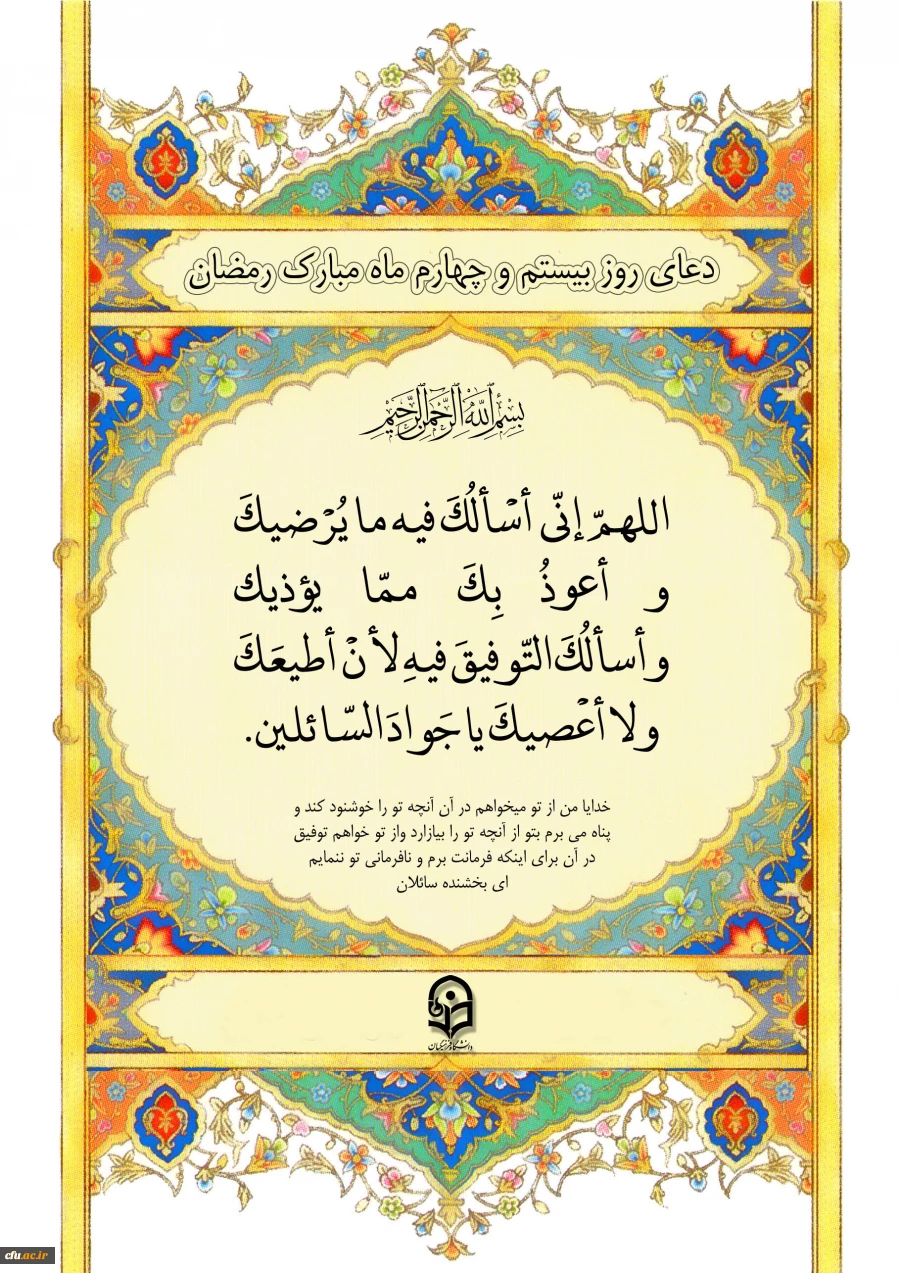 دعای روز بیستم و چهارم ماه مبارک رمضان
بِسْمِ اللَّهِ الرَّحْمَنِ الرَّحِيمِ
اللهمّ إنّی أسْألُكَ فيه ما يُرْضيكَ
و أعوذُ بِكَ ممّا يؤذيك
وأسألُكَ التّوفيقَ فيهِ لأنْ أطيعَكَ
ولا أعْصيكَ يا جَوادَ السّائلين.
خدایا من از تو میخواهم در آن آنچه تو را خوشنود کند و
پناه می برم بتو از آنچه تو را بیازارد واز تو خواهم توفیق
در آن برای اینکه فرمانت برم و نافرمانی تو ننمایم
ای بخشنده سائلان
دانشگاه فرهنگیان
cfu.ac.ir